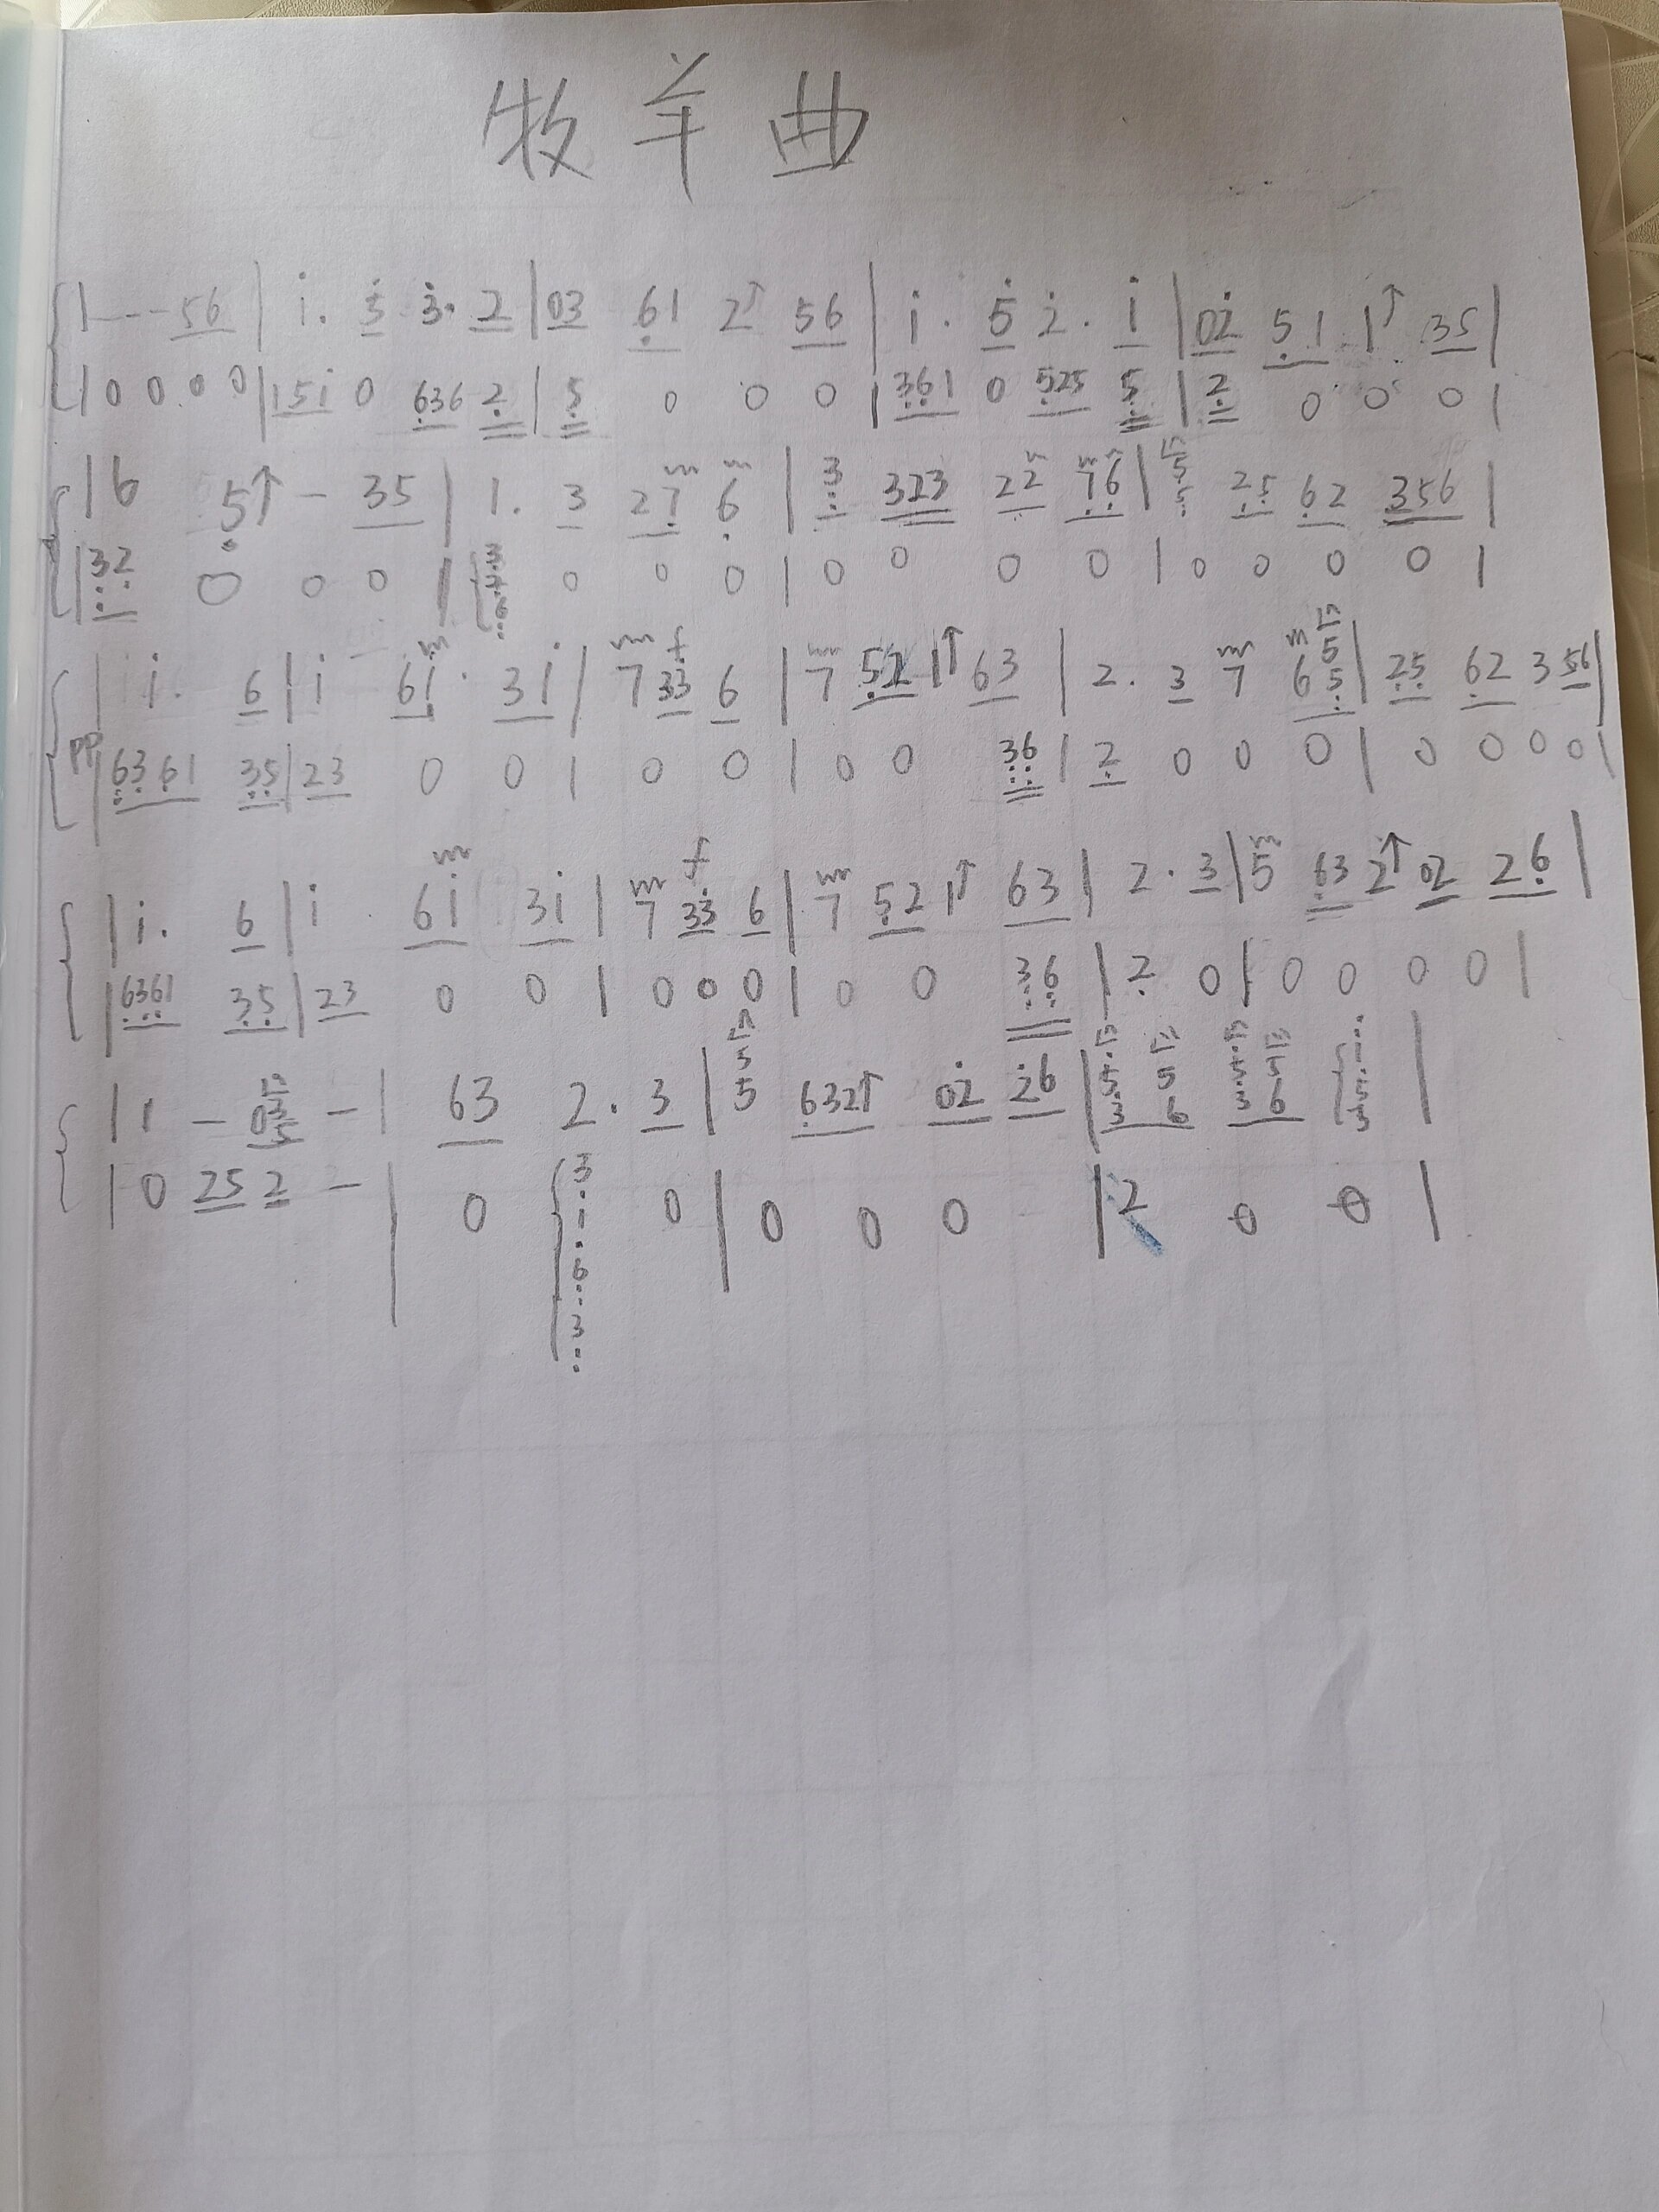 牧羊曲
1 - - - 56 | i. 5̇ 3̇. 2 | 03 6̣1 2↑ 56 | i. 5̇ 2̇. i | 02̇ 5̣1 1↑ 35 |
| 0 0 0 0 | 15i 0 6̣36 2̣ | 5̣ 0 0 0 | 3̣6̣1 0 5̣25 5̣ | 2̣ 0 0 0 |
| 6 5↑ - 35 | 1. 3 27̣ 6̣ | 3̣ 323 22 7̣6̣ | 5 5̣ 2̣5̣ 6̣2 356 |
| 32 0 0 0 | 0 0 0 | 0 0 0 0 | 0 0 0 0 |
| i. 6 | i 6i. 3i | 7 33 6 | 7 5̣2 1↑ 63 | 2. 3 7 6 5 5̣ | 2̣5̣ 6̣2 3 56 |
pp | 6361 35 | 23 0 0 | 0 0 | 0 0 36 | 2̣ 0 0 0 | 0 0 0 0 |
| i. 6 | i 6i 3i | 7 33 6 | 7 5̣2 1↑ 63 | 2. 3 | 5 63 2↑ 02 26̣ |
| 6361 3̣5̣ | 23 0 0 | 0 0 0 | 0 0 36 | 2̣ 0 | 0 0 0 0 |
| 1 - 0 3 5 - | 63 2. 3 | 5 5 6̣32↑ 02̇ 2̇6 | 3 5 6 3 6 |
| 0 25 2 - | 0 3 1 6 3 0 | 0 0 0 | 2 0 0 |